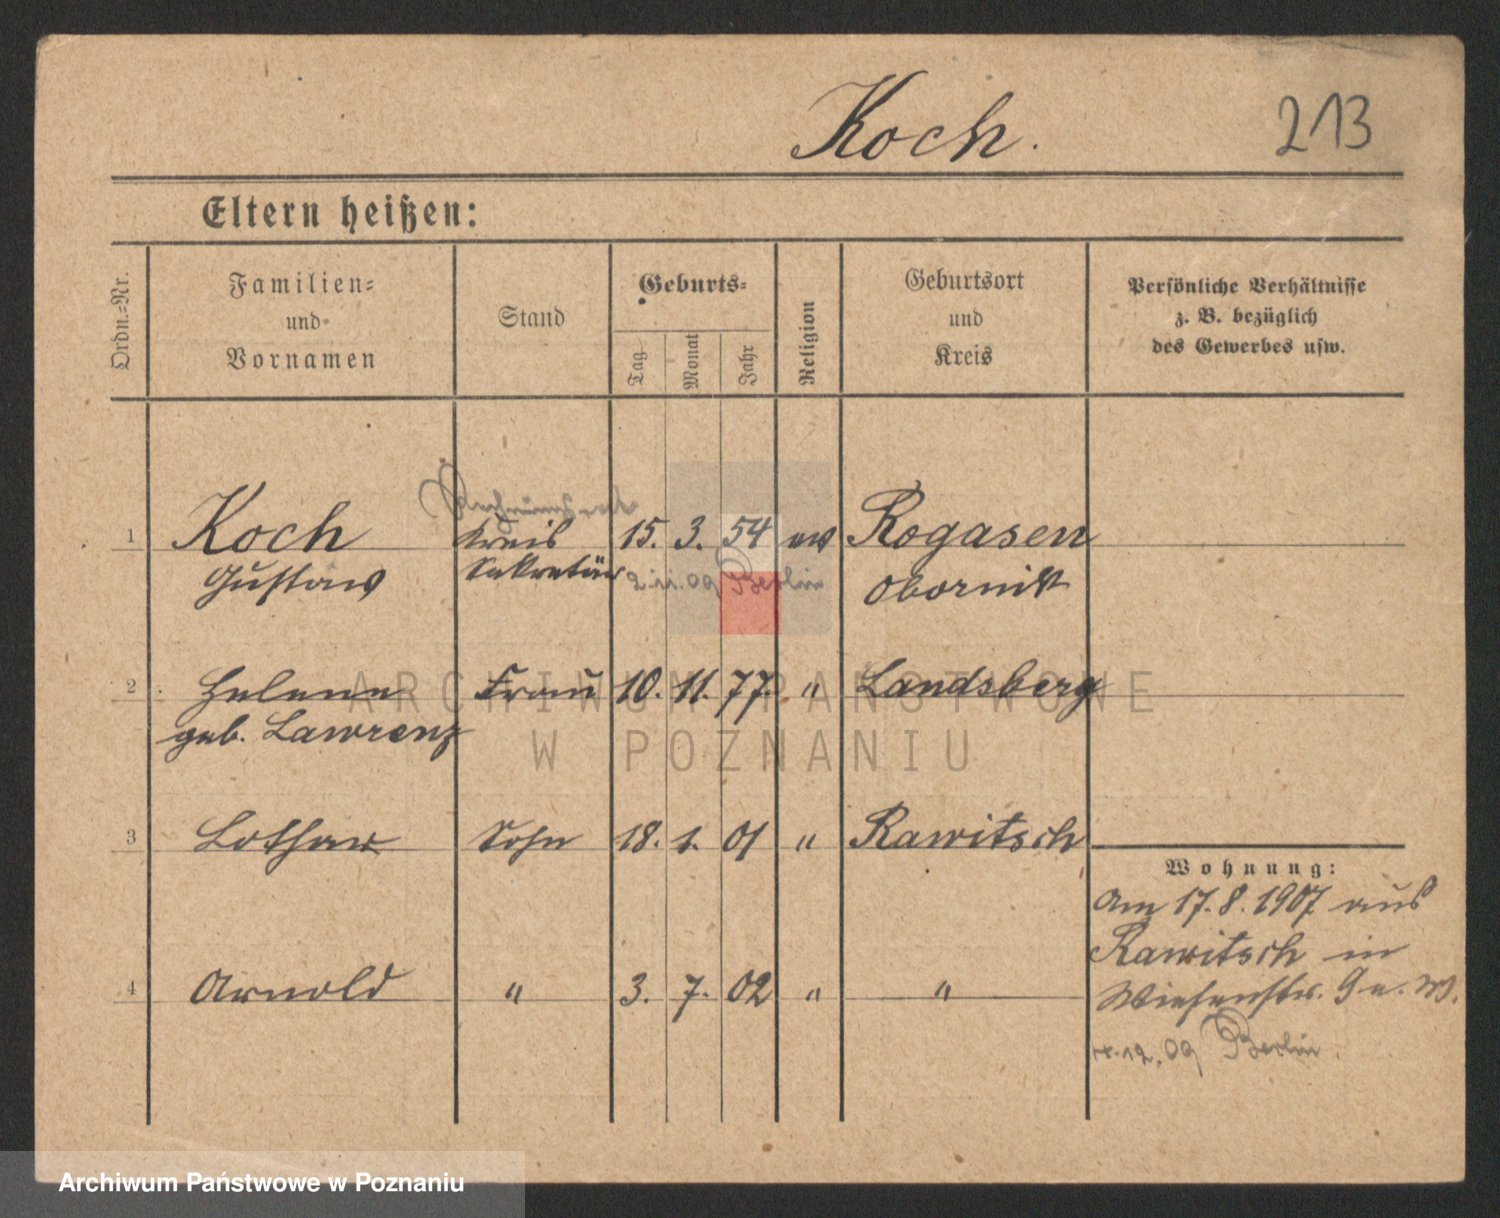 Koch.
213
Eltern heißen:
Ordn.-Nr.
Familien-
und
Vornamen
Stand
Geburts-
Tag
Monat
Jahr
Religion
Geburtsort
und
Kreis
Persönliche Verhältnisse
z. B. bezüglich
des Gewerbes usw.
1 Koch Kreis 15. 3. 54 ev Rogasen
Gustav Sekretär 2.11.09 Berlin Obornik
2 Helene Frau 10. 11. 77. " Landsberg
geb. Lawrenz
3 Lothar Sohn 18. 1. 01 " Rawitsch
Wohnung:
Am 17. 8. 1907 aus
Rawitsch in
4 Arnold " 3. 7. 02 " "
Wiesenstr. 9
12.09 Berlin
ARCHIWUM PAŃSTWOWE
W POZNANIU
Archiwum Państwowe w Poznaniu